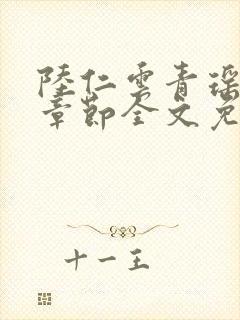 陸仁雲青瑶
章節全文免
十一王